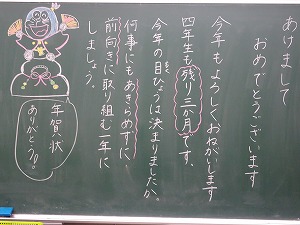 あけまして
おめでとうございます
今年もよろしくおねがいします
四年生も残り三か月です。
今年の目ひょうは決まりましたか。
何事にもあきらめずに
前向きに取り組む一年に
しましょう。
年賀状
ありがとう!!